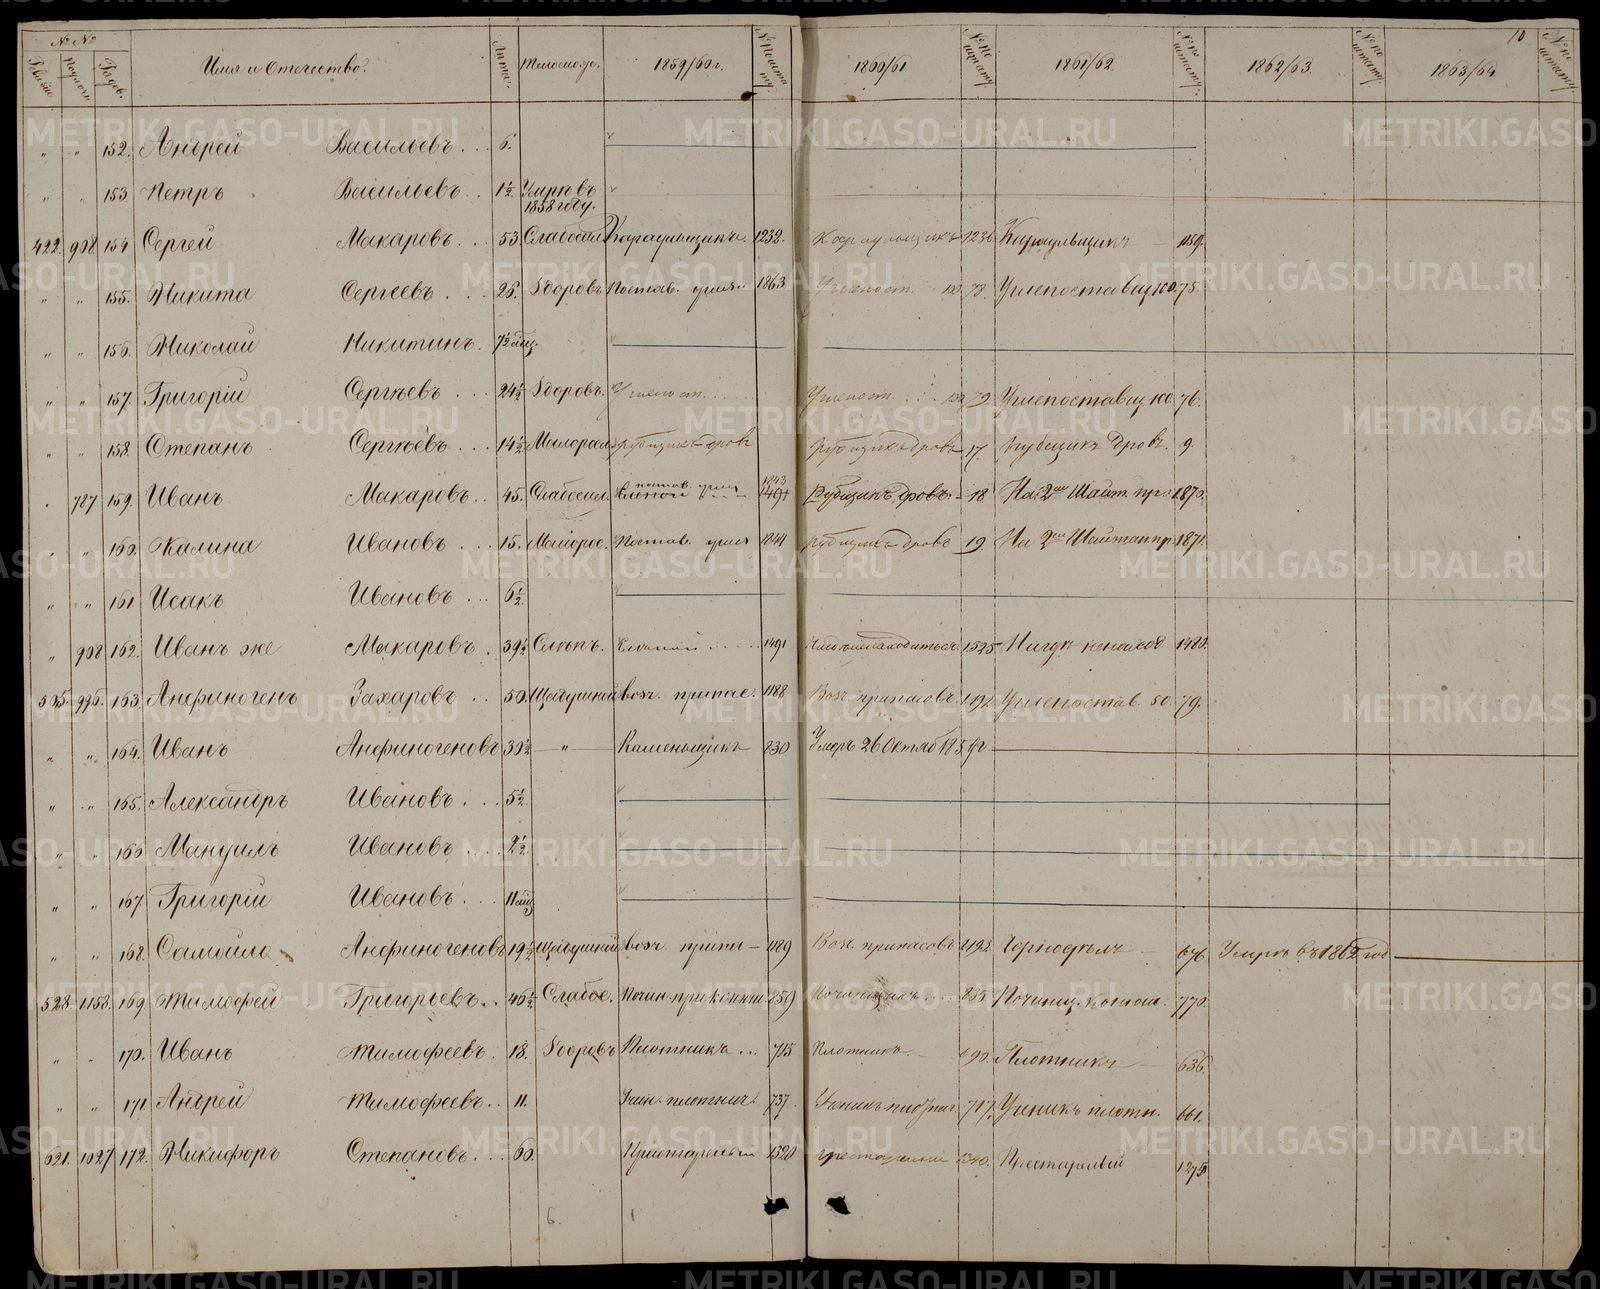 № №
Имя и Отчество.
Лета.
Телослож.
1859/60 г.
№ по штату
1860/61
№ по штату
1861/62
№ по штату
1862/63
№ по штату
10
1863/64
№ по штату
" " 152. Андрей Васильевъ 6.
" " 153. Петръ Васильевъ 1½ Умре въ 1858 году.
422. 908 154 Сергей Макаровъ 53. Слабосил Караульщикъ 1232. Караульщикъ 1236 Караульщикъ 1159.
" " 155. Никита Сергеевъ 26. Здоровъ Постав. угля 1863 Углепост. 100. 78. Углепоставщ 100. 75.
" " 156. Николай Никитинъ. 7½
" " 157. Григорій Сергѣевъ 24½ Здоровъ. Углепост. Углепост. 79 Углепоставщ 100 76.
" " 158. Степанъ Сергѣевъ 14½ Малоросл Рубщикъ дровъ Рубщикъ дровъ 17. Рубщикъ Дровъ. 9.
787 159. Иванъ Макаровъ 45. Слабосил. постав. угля 1843 Рубщикъ дровъ 18 На 2й Шайт. пр. 1870.
" " 160. Калина Ивановъ 15. Малорос. Постав. угля 1844 Рубщикъ дровъ 19. На 2й Шайтан пр. 1871.
" " 161 Исакъ Ивановъ 6½
" 908 162. Иванъ же Макаровъ 39½ Слѣпъ. Слѣпой 1491 1535. 1480.
525. 996. 163. Анфиногенъ Захаровъ 50. Тщедушный возч. припас. 1188 Возч. припасовъ 1192 Углепостав. 50. 79.
" " 164. Иванъ Анфиногеновъ 30½ " Каменьщикъ 830 Умеръ 26 Октяб 1859 г
" " 165. Александръ Ивановъ 5½
" " 166 Мануилъ Ивановъ 2½
" " 167. Григорій Ивановъ 11
" " 168. Самойло Анфиногеновъ 19½ Тщедушный возч. припа 1189 Возч. припасовъ 1193. 676. Умре въ 1862 год
528. 1158. 169. Тимофей Григорьевъ 46½ Слабос. 859 Починщикъ 835 770.
" " 170. Иванъ Тимофеевъ. 18. Здоровъ Плотникъ 715 Плотникъ. 690. Плотникъ 636.
" " 171. Андрей Тимофеевъ 11. Учен. плотнич. 737. Ученикъ плотнич. 717. Ученикъ плотн. 661.
621. 1027 172. Никифоръ Степановъ 60. Престарелый 1320 престарелый 1340. Престарелый 1276
6. 1
METRIKI.GASO-URAL.RU